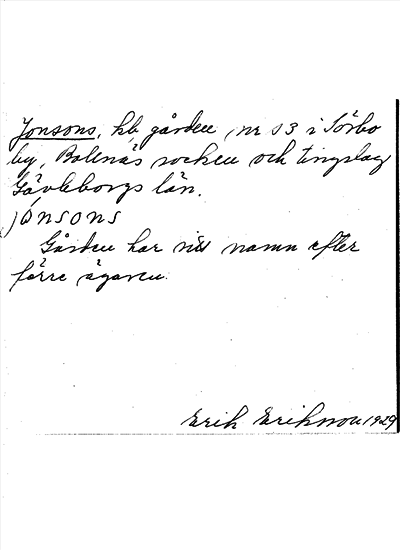 Jonsons, hb, gården nr 13 i Sörbo
by, Bollnäs socken och tingslag
Gävleborgs län.
jonsons
Gården har sitt namn efter
förre ägaren.
Erik Eriksson 1929